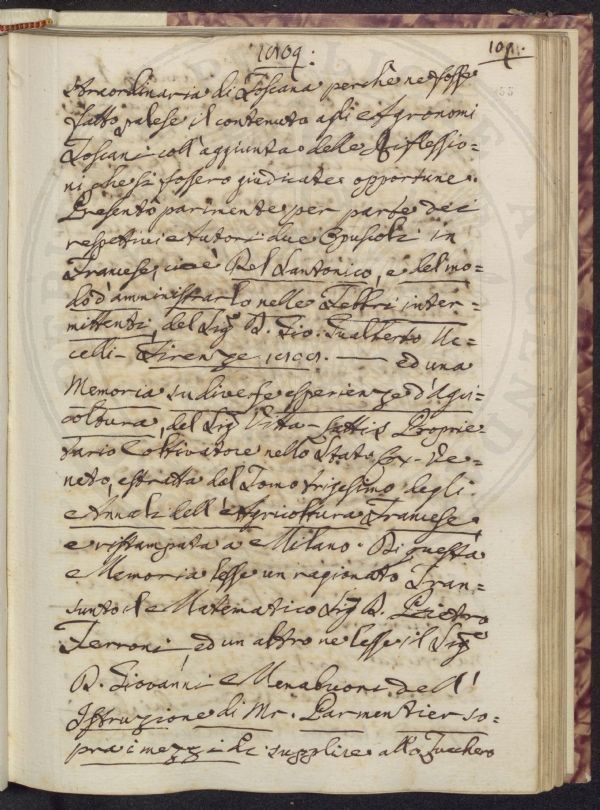 1809: 101.
straordinaria di Toscana perchè ne fosse
fatto palese il contenuto agli Agronomi
Toscani coll'aggiunta delle Riflessio=
ni che si fossero giudicate opportune.
Presentò parimente per parte dei
respettivi Autori due Opuscoli in
Francese, cioè Del Lantonico, e del mo=
do d'amministrarlo nelle Febbri inter=
mittenti, del Sig.r D. Gio. Gualberto Uc=
celli - Firenze 1808. — ed una
Memoria su diverse esperienze d'Agri=
coltura, del Sig.r Vitta - Proprie=
tario Coltivatore nello Stato Ex-Ve=
neto, estratta dal Tomo trigesimo degli
Annali dell'Agricoltura Francese,
e ristampata a Milano. Di questa
Memoria lesse un ragionato Tran=
sunto il Matematico Sig.r D. Pietro
Ferroni, ed un altro ne lesse il Sig.r
D. Giovanni Menabuoni, dell'
Istruzione di Mr. Parmentier so=
pra i mezzi di supplire allo Zucchero